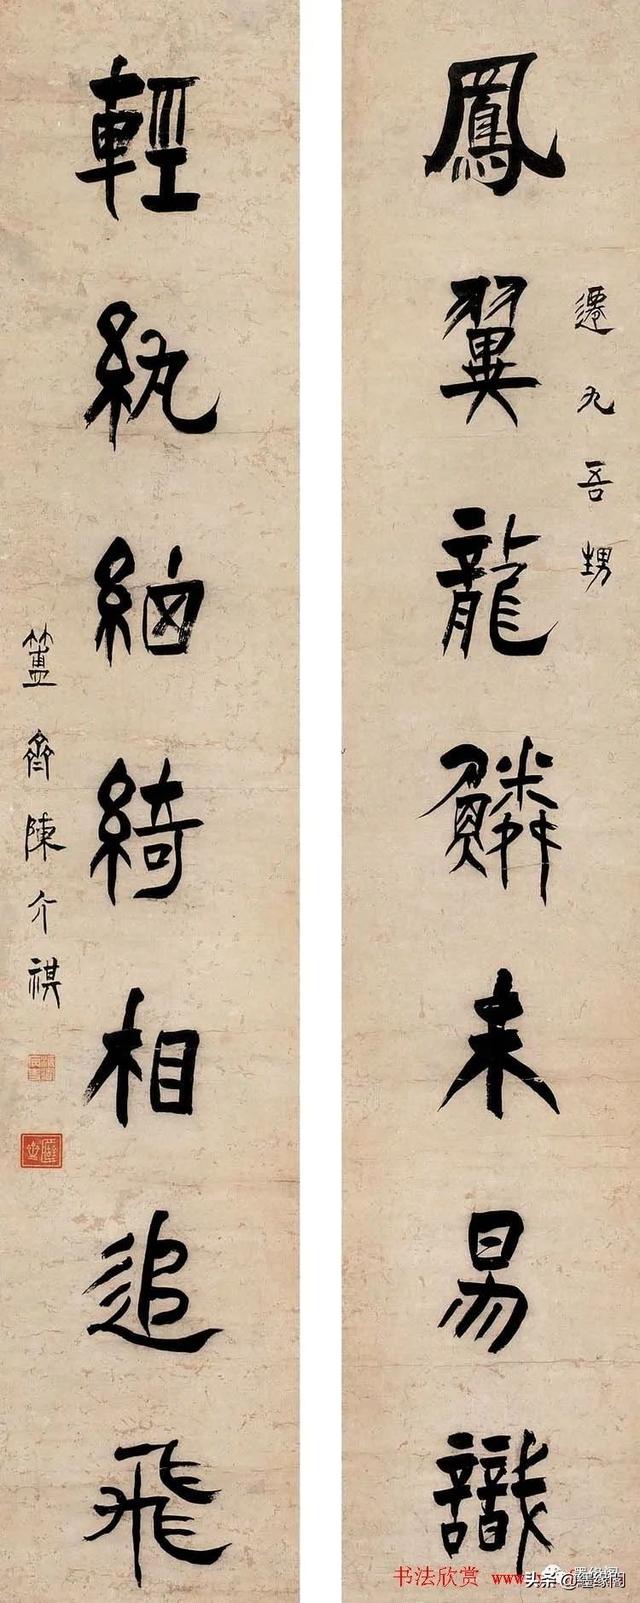 鳳翼龍鱗未易識
遷九吾甥
輕紈細綺相追飛
簠齋陳介祺
书法欣赏 www.
头条 @墨缘阁